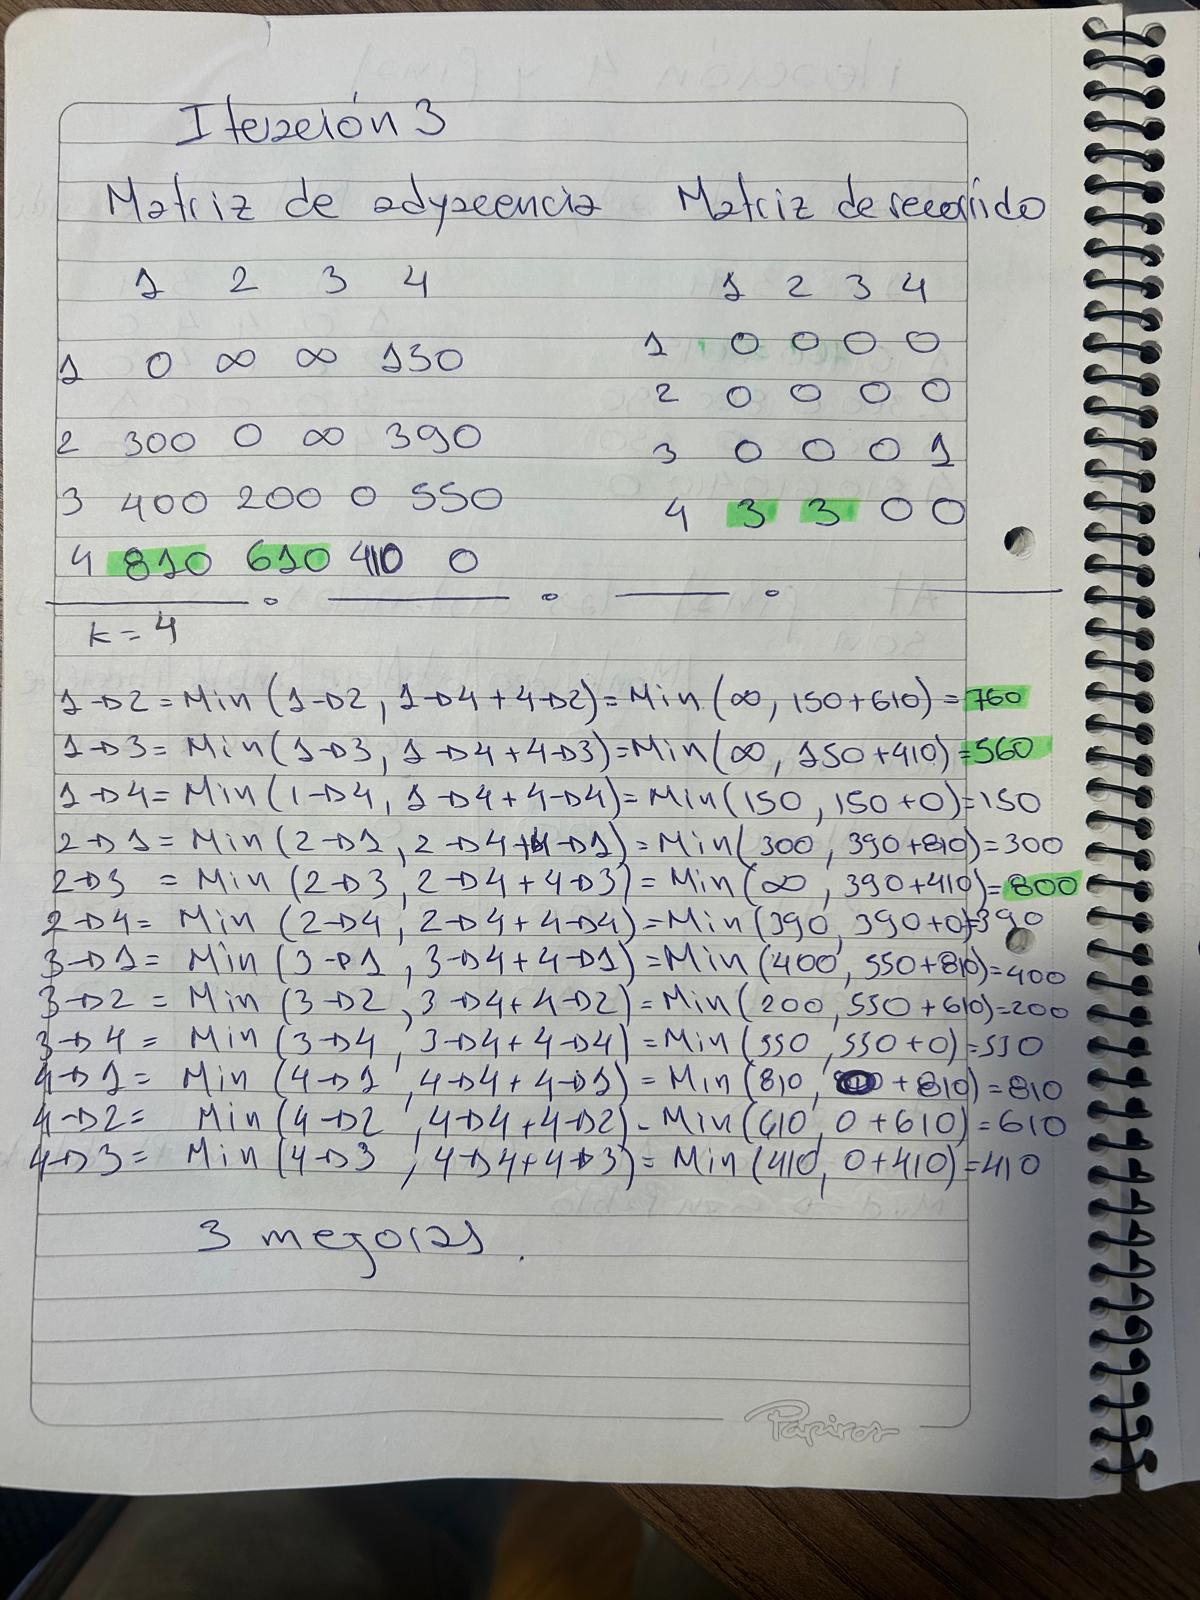 Iteración 3
Matriz de adyacencia Matriz de recorrido
1 2 3 4 1 2 3 4
1 0 ∞ ∞ 150 1 0 0 0 0
2 300 0 ∞ 390 2 0 0 0 0
3 400 200 0 550 3 0 0 0 1
4 810 610 410 0 4 3 3 0 0
K = 4
1→2 = Min (1→2, 1→4 + 4→2) = Min (∞, 150+610) = 760
1→3 = Min (1→3, 1→4 + 4→3) = Min (∞, 150+410) = 560
1→4 = Min (1→4, 1→4 + 4→4) = Min (150, 150+0) = 150
2→1 = Min (2→1, 2→4 + 4→1) = Min (300, 390+810) = 300
2→3 = Min (2→3, 2→4 + 4→3) = Min (∞, 390+410) = 800
2→4 = Min (2→4, 2→4 + 4→4) = Min (390, 390+0) = 390
3→1 = Min (3→1, 3→4 + 4→1) = Min (400, 550+810) = 400
3→2 = Min (3→2, 3→4 + 4→2) = Min (200, 550+610) = 200
3→4 = Min (3→4, 3→4 + 4→4) = Min (550, 550+0) = 550
4→1 = Min (4→1, 4→4 + 4→1) = Min (810, + 810) = 810
4→2 = Min (4→2, 4→4 + 4→2) - Min (610, 0+610) = 610
4→3 = Min (4→3, 4→4 + 4→3) = Min (410, 0+410) = 410
3 mejoras.
Papiros